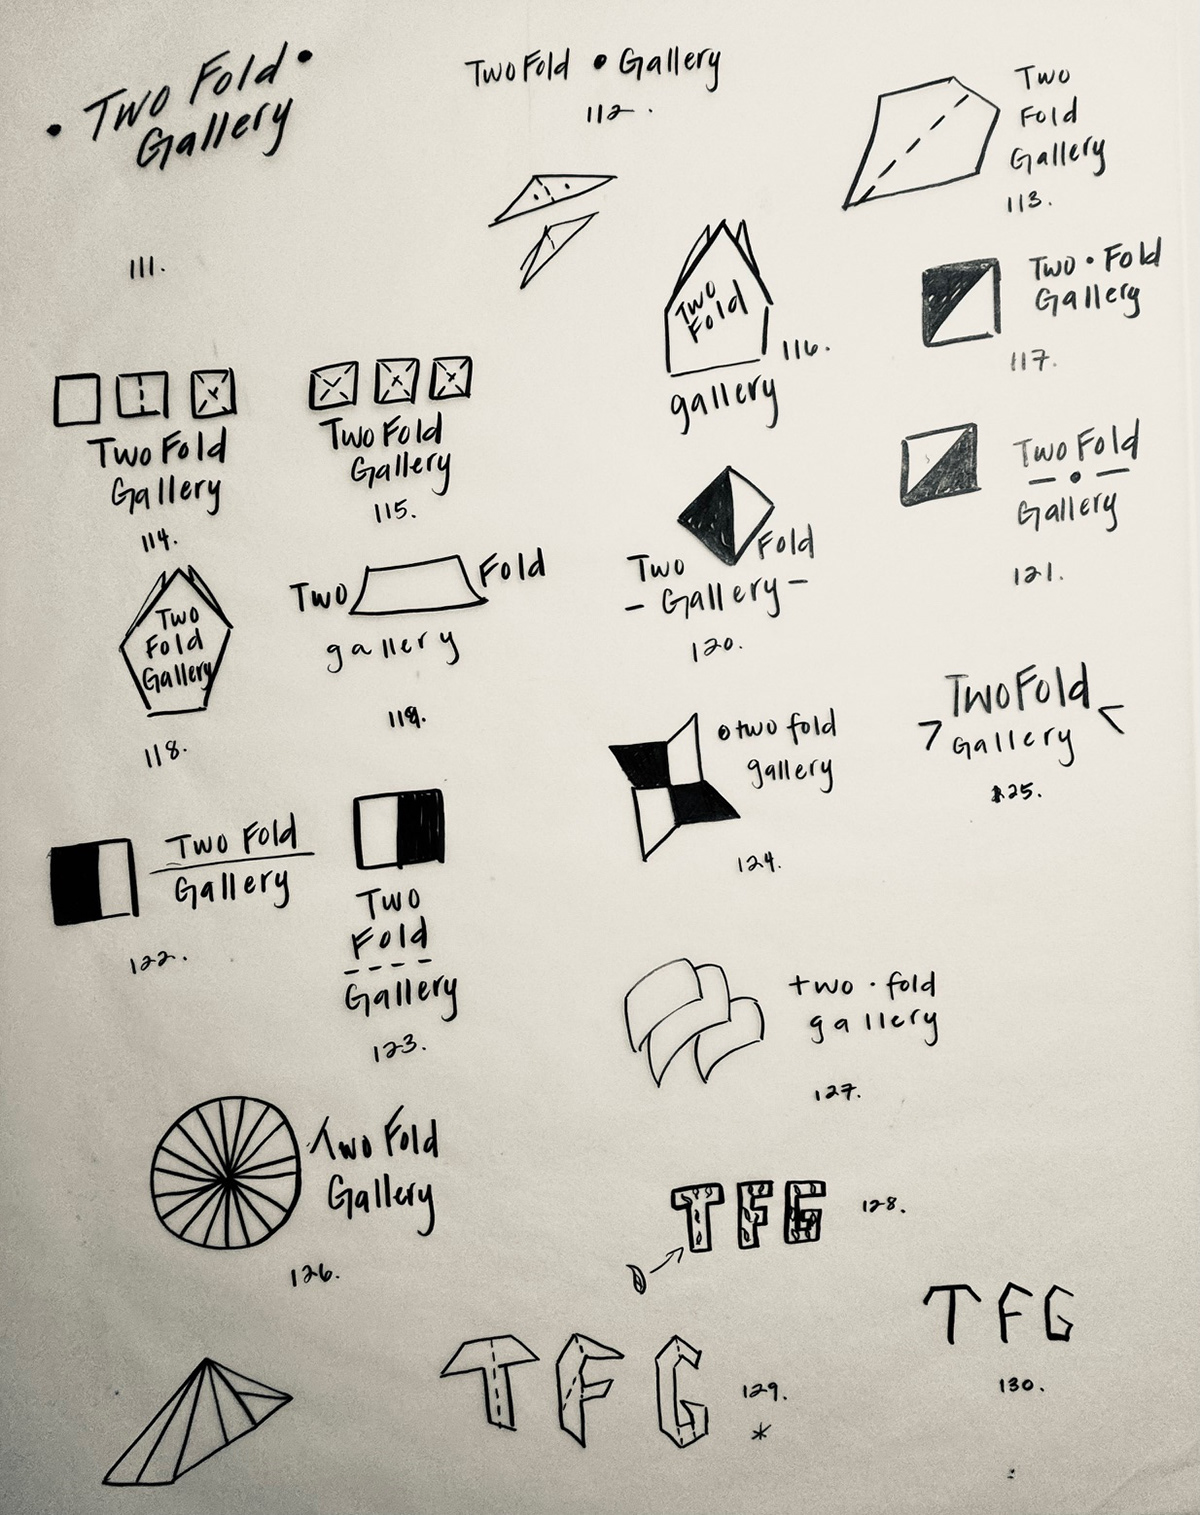 • Two Fold •
Gallery
111.
Two Fold • Gallery
112.
Two
Fold
Gallery
113.
Two Fold
Gallery
114.
Two Fold
Gallery
115.
Two
Fold
gallery
116.
Two • Fold
Gallery
117.
Two
Fold
Gallery
118.
Two Fold
gallery
119.
Two Fold
- Gallery -
120.
Two Fold
— • —
Gallery
121.
Two Fold
Gallery
122.
Two
Fold
- - - -
Gallery
123.
two fold
gallery
124.
Two Fold
Gallery
125.
Two Fold
Gallery
126.
two · fold
gallery
127.
TFG
128.
TFG
129.
*
TFG
130.